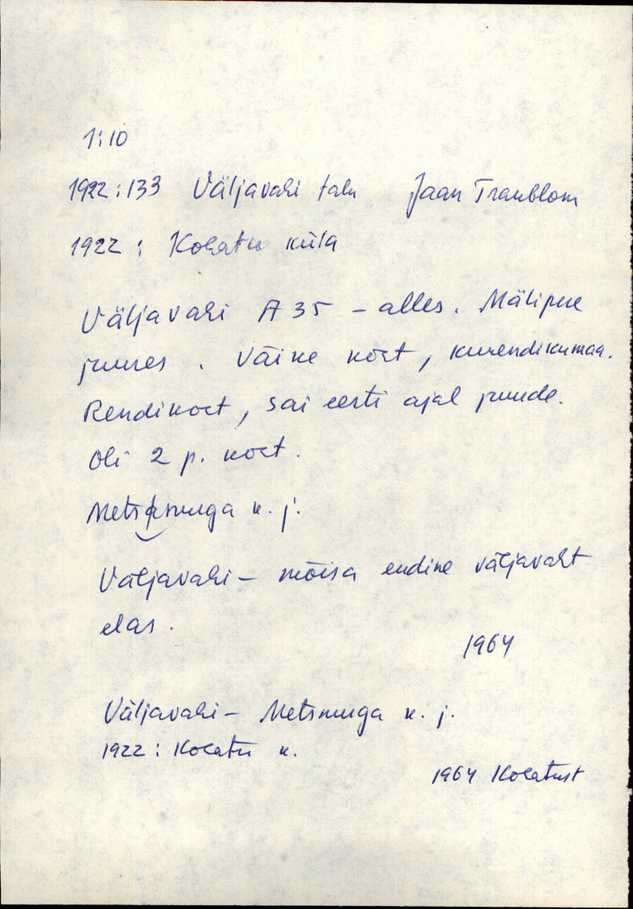 1:10
1922:133 Väljavahi talu Jaan Tramblom
1922: Kolatu küla
Väljavahi A 35 – alles. Mälipuu
juures. Väike koct, kurendikumaa.
Rendikoct, sai eesti ajal puude.
Oli 2 p. koct.
Metsanuga k. j.
Väljavahi – mõisa endine väljavaht
elas.
1964
Väljavahi – Metsnuga k. j.
1922: Kolatu k.
1964 Kolatust